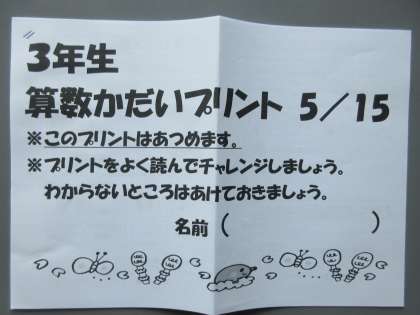 3年生
算数かだいプリント 5/15
※このプリントはあつめます。
※プリントをよく読んでチャレンジしましょう。
わからないところはあけておきましょう。
名前（　　　　　　　　）